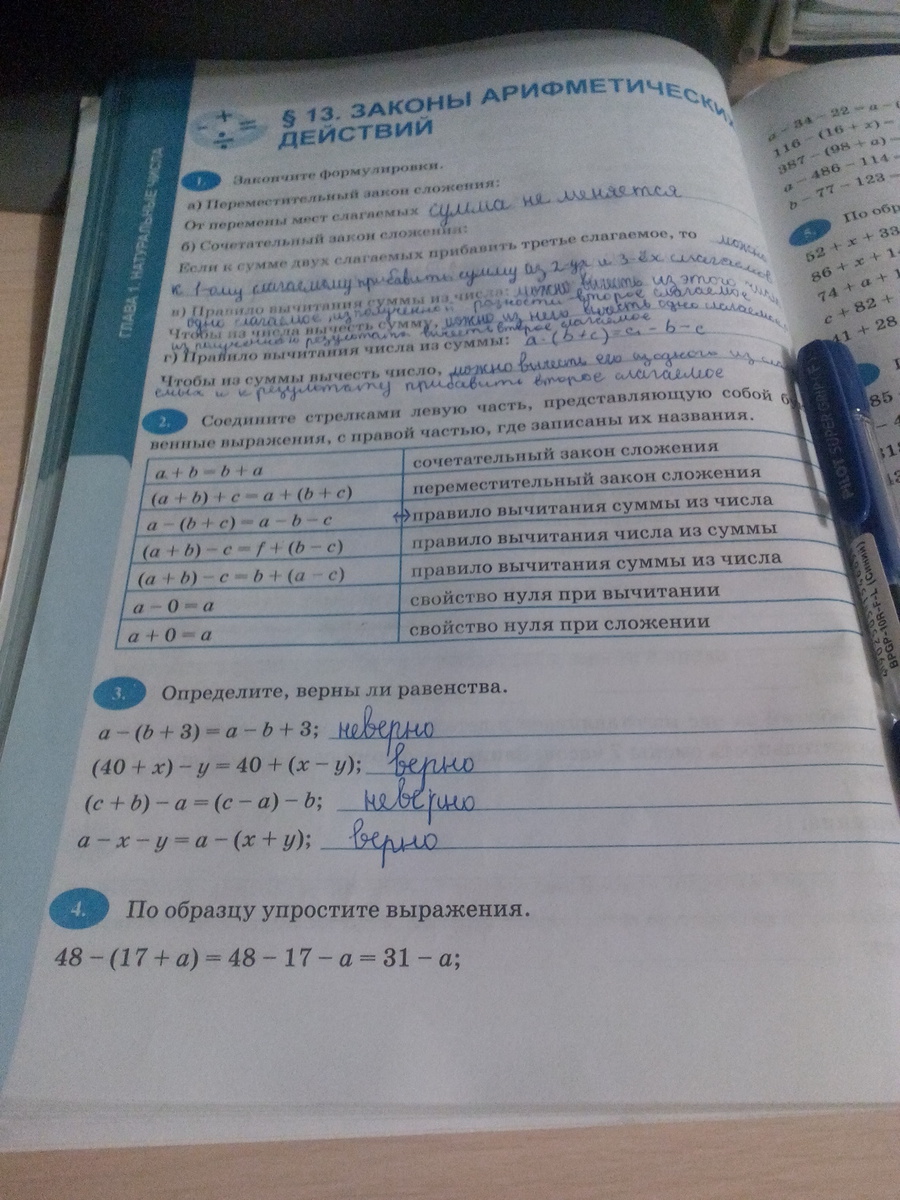 ГЛАВА 1. НАТУРАЛЬНЫЕ ЧИСЛА
§ 13. ЗАКОНЫ АРИФМЕТИЧЕСКИХ
ДЕЙСТВИЙ
1. Закончите формулировки.
а) Переместительный закон сложения:
От перемены мест слагаемых сумма не меняется
б) Сочетательный закон сложения:
Если к сумме двух слагаемых прибавить третье слагаемое, то можно
к 1-ому слагаемому прибавить сумму из 2-ух и 3-ёх слагаемое
в) Правило вычитания суммы из числа: можно вычесть из этого числа
одно слагаемое, из полученной разности второе слагаемое
Чтобы из числа вычесть сумму, можно из него вычесть одно слагаемое,
из полученного результата вычесть второе слагаемое
г) Правило вычитания числа из суммы: a-(b+c)=a-b-c
Чтобы из суммы вычесть число, можно вычесть его из одного из
и к результату прибавить второе слагаемое
2. Соедините стрелками левую часть, представляющую собой
венные выражения, с правой частью, где записаны их названия.
a + b = b + a сочетательный закон сложения
(a + b) + c = a + (b + c) переместительный закон сложения
a − (b + c) = a − b − c ↔ правило вычитания суммы из числа
(a + b) − c = f + (b − c) правило вычитания числа из суммы
(a + b) − c = b + (a − c) правило вычитания суммы из числа
a − 0 = a свойство нуля при вычитании
a + 0 = a свойство нуля при сложении
3. Определите, верны ли равенства.
a − (b + 3) = a − b + 3; неверно
(40 + x) − y = 40 + (x − y); верно
(c + b) − a = (c − a) − b; неверно
a − x − y = a − (x + y); верно
4. По образцу упростите выражения.
48 − (17 + a) = 48 − 17 − a = 31 − a;
a − 34 − 22 = a − (
116 − (16 + x) =
387 − (98 + a) =
a − 486 − 114 =
b − 77 − 123 =
5. По обр
52 + x + 33
86 + x + 1
74 + a + 1
c + 82 +
41 + 28
85
PILOT SUPER GRIP
BPGP-10R-F-L (Синий)